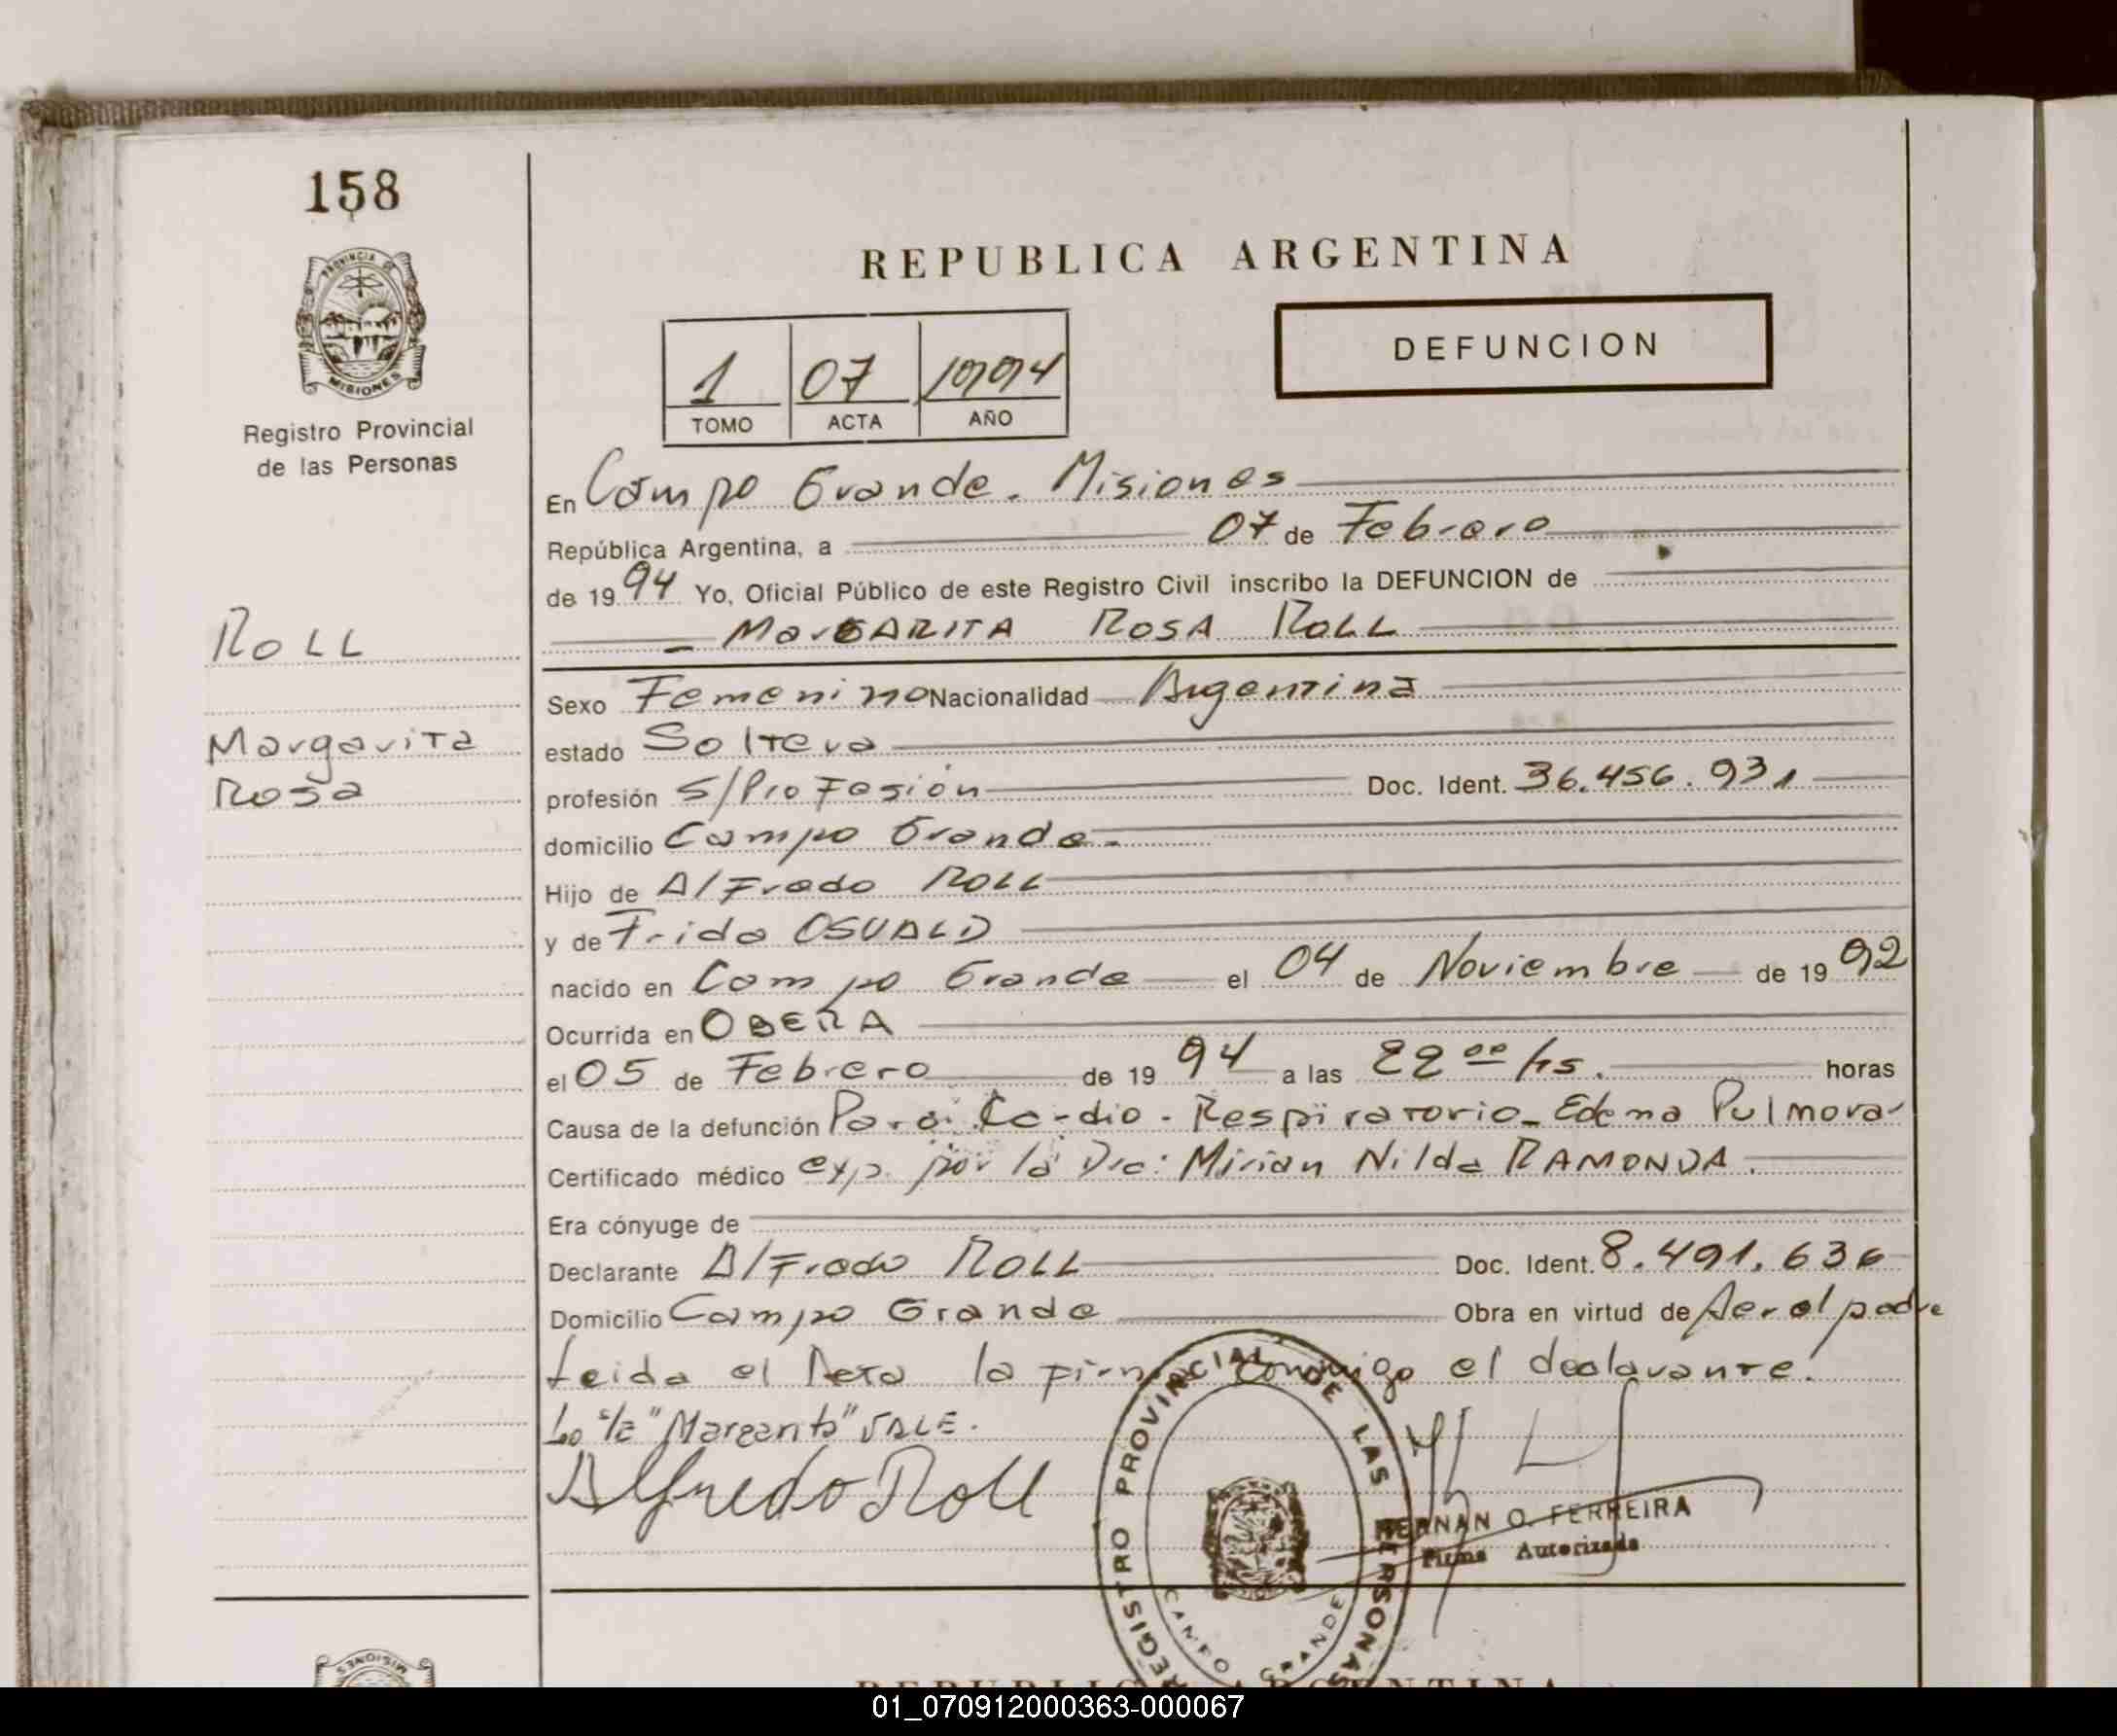 158
PROVINCIA DE
MISIONES
Registro Provincial
de las Personas
REPUBLICA ARGENTINA
DEFUNCION
1 07 1994
TOMO ACTA AÑO
En Campo Grande. Misiones
República Argentina, a 07 de Febrero
de 1994 Yo, Oficial Público de este Registro Civil inscribo la DEFUNCION de
MarGARITA ROSA ROLL
ROLL
Margarita
Rosa
Sexo Femenino Nacionalidad Argentina
estado Soltera
profesión S/Profesión Doc. Ident. 36.456.931
domicilio Campo Grande.
Hijo de Alfredo ROLL
y de Frida OSUALD
nacido en Campo Grande el 04 de Noviembre de 1992
Ocurrida en OBERA
el 05 de Febrero de 1994 a las 22 00 hs. horas
Causa de la defunción Paro Cardio-Respiratorio_Edema Pulmonar
Certificado médico exp. por la Dra: Mirian Nilda RAMONDA.
Era cónyuge de
Declarante Alfredo ROLL Doc. Ident. 8.491.636
Domicilio Campo Grande Obra en virtud de ser el padre
Leida el Acta la firma conmigo el declarante.
Lo s/r "Margarita" VALE.
Alfredo Roll
REGISTRO PROVINCIAL DE LAS PERSONAS
CAMPO GRANDE
HERNAN O. FERREIRA
Firma Autorizada
MISIONES
REPUBLICA ARGENTINA
01_070912000363-000067